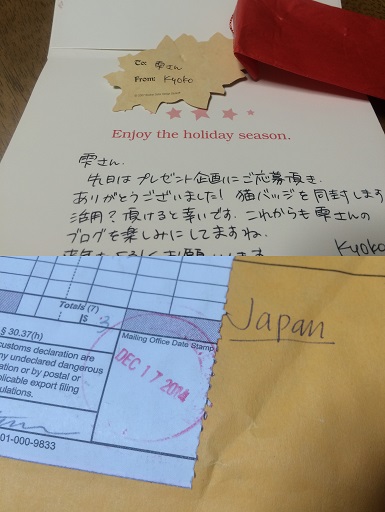 To: 雫さん
From: Kyoko
Enjoy the holiday season.
雫さん
先日は プレゼント企画にご応募頂き、
ありがとうございました! 猫バッジを同封します
活用? 頂けると幸いです. これからも雫さんの
ブログを楽しみにしてますね.
Kyoko
Totals (7)
|$ 3
§ 30.37(h)
customs declaration are
ny undeclared dangerous
ation or by postal or
plicable export filing
ulations.
Mailing Office Date Stamp
DEC 17 2014
01-000-9833
Japan